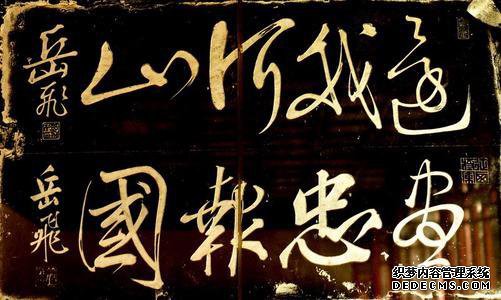 還我河山
岳飛
盡忠報國
岳飛
织梦内容管理系统
DEDECMS.COM